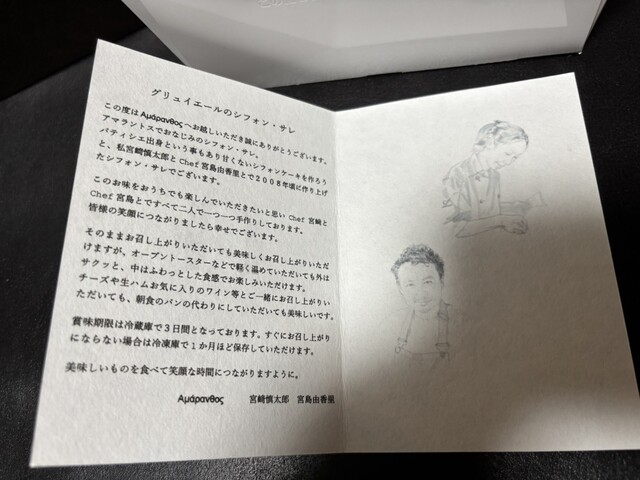 グリュイエールのシフォン・サレ
この度はΑμάρανθοςへお越しいただき誠にありがとうございます。
アマラントスでおなじみのシフォン・サレ。
パティシエ出身という事もあり甘くないシフォンケーキを作ろう
と、私宮崎慎太郎とChef宮島由香里とで2008年頃に作り上げ
たシフォン・サレでございます。
このお味をおうちでも楽しんでいただきたいと思いChef宮崎と
Chef宮島とですべて二人で一つ一つ手作りしております。
皆様の笑顔につながりましたら幸せでございます。
そのままお召し上がりいただいても美味しくお召し上がりいただ
けますが、オーブントースターなどで軽く温めていただいても外は
サクッと、中はふわっとした食感でお楽しみいただけます。
チーズや生ハムお気に入りのワイン等とご一緒にお召し上がりい
ただいても、朝食のパンの代わりにしていただいても美味しいです。
賞味期限は冷蔵庫で3日間となっております。すぐにお召し上がり
にならない場合は冷凍庫で1か月ほど保存していただけます。
美味しいものを食べて笑顔な時間につながりますように。
Αμάρανθος 宮崎慎太郎 宮島由香里